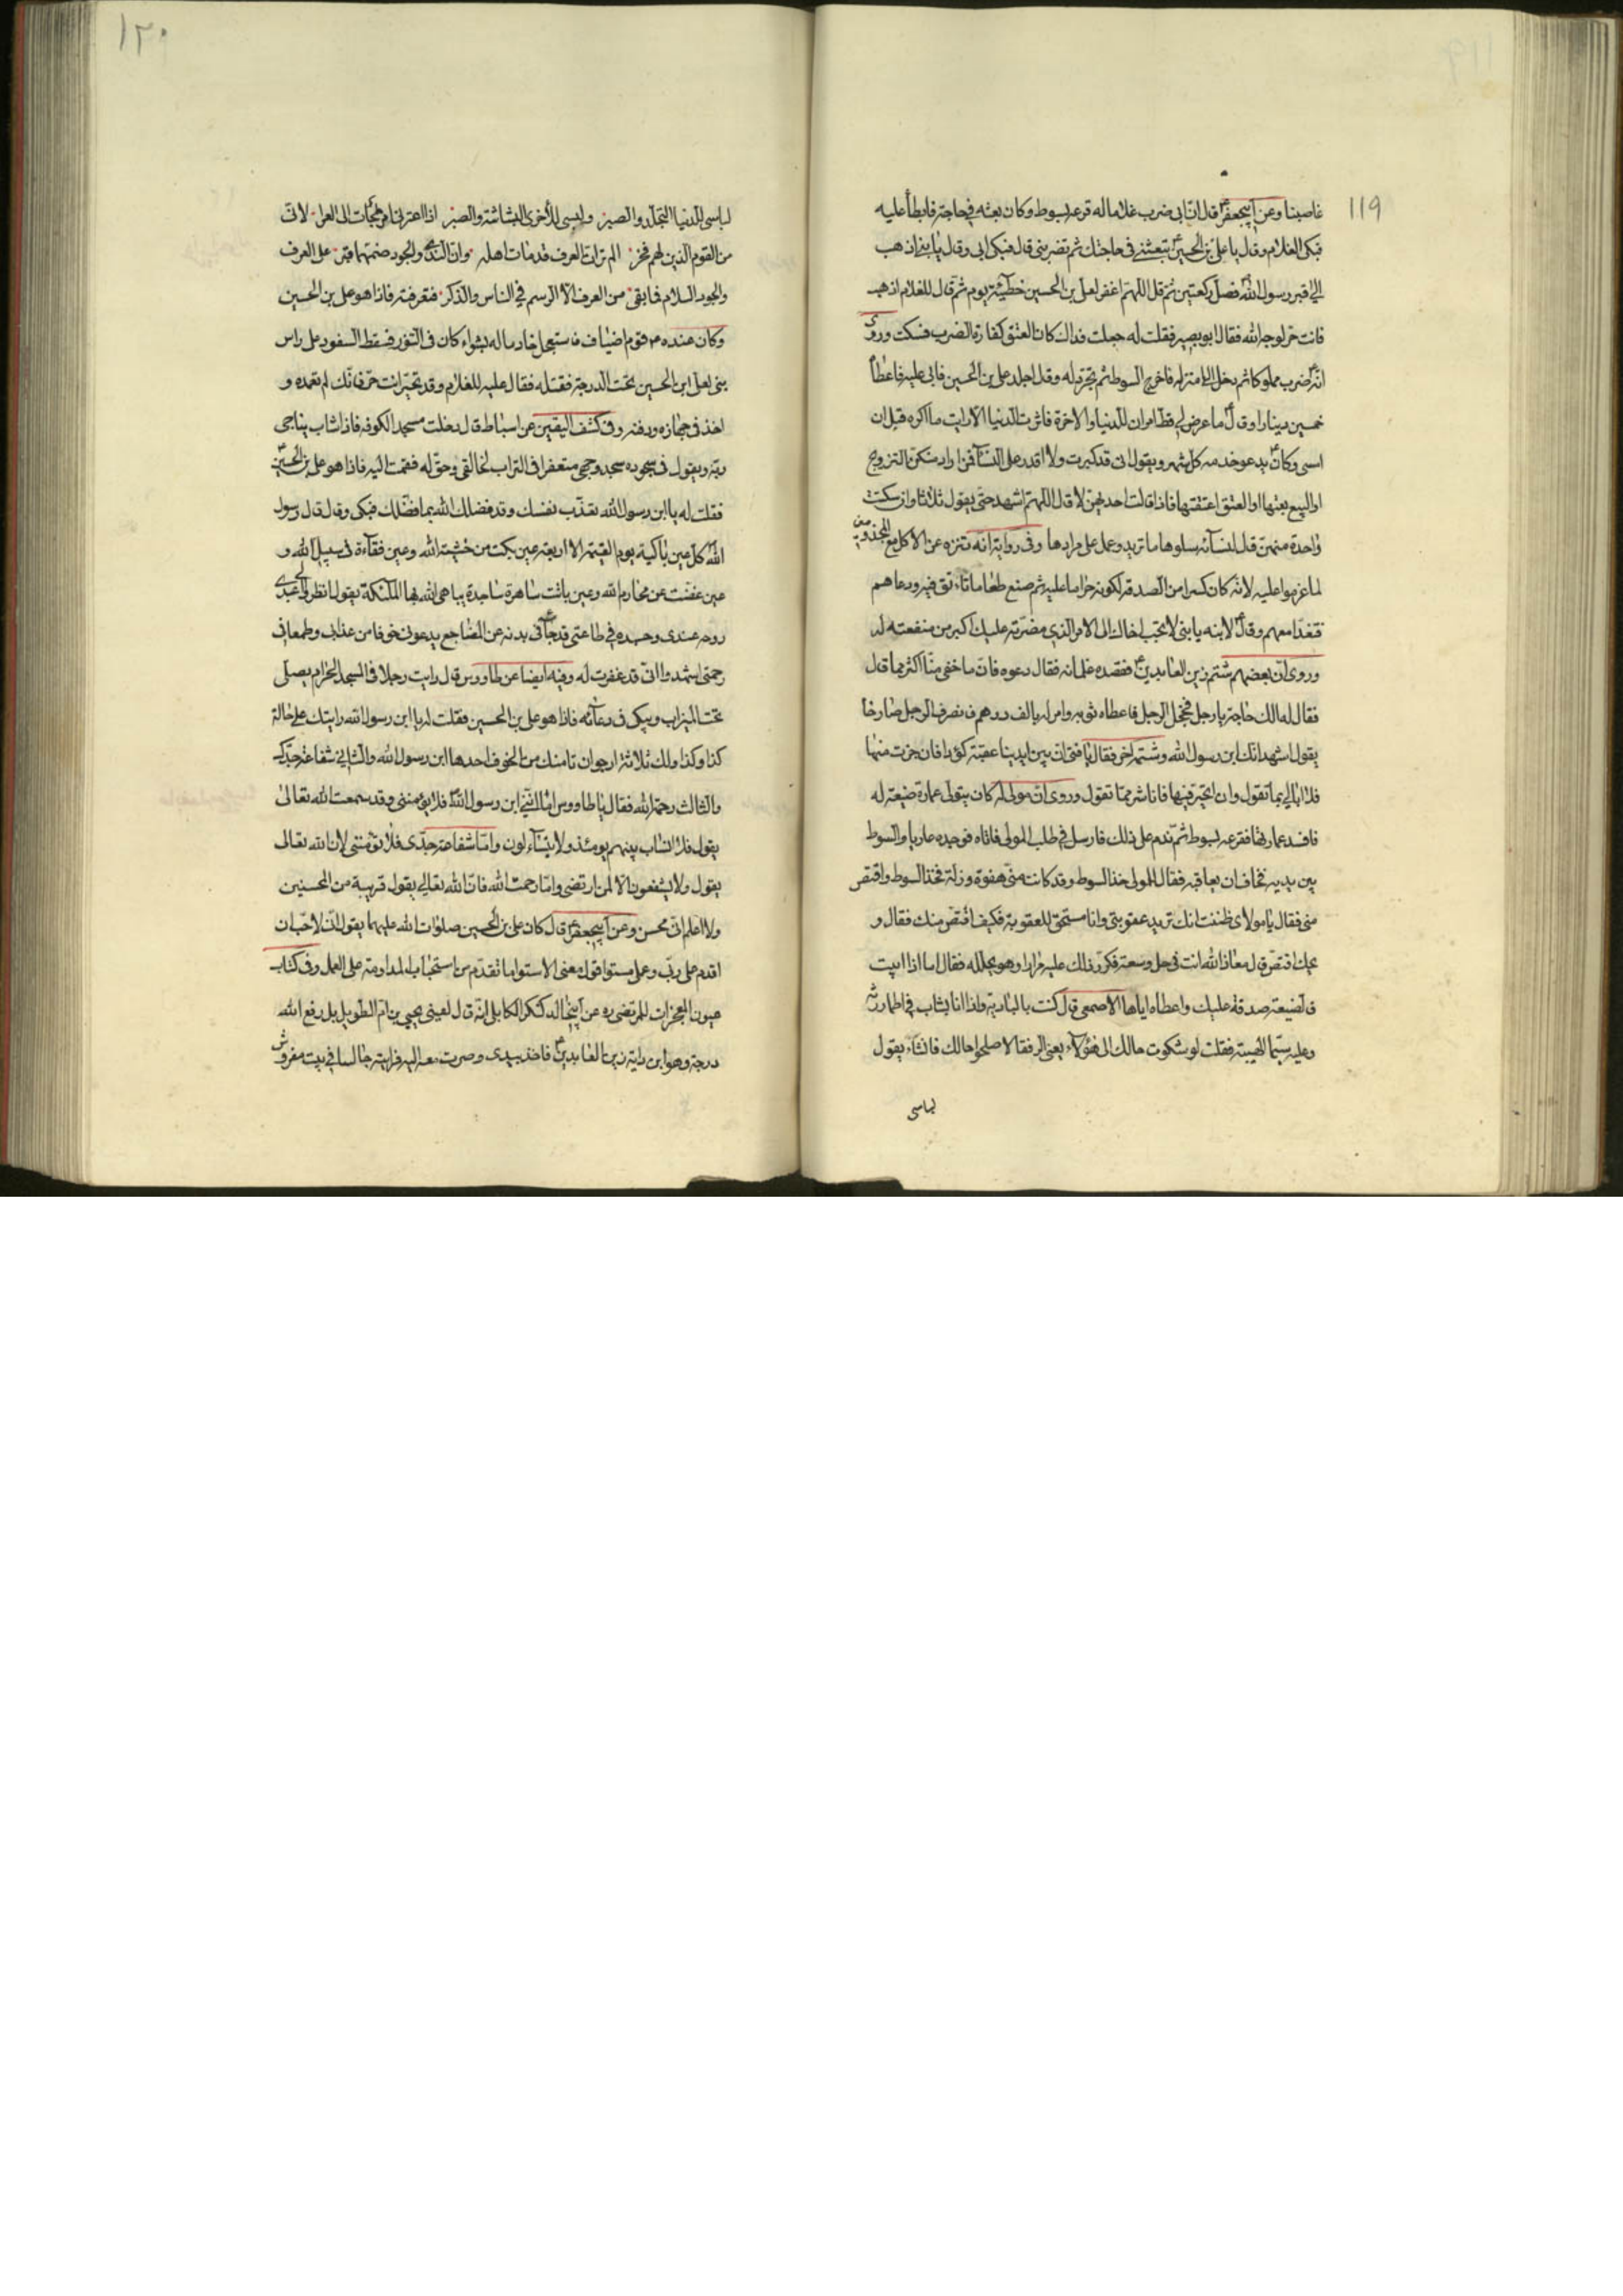 ١١٩
غاصبنا وعن ابيجعفر ع قال ان ابى ضرب غلاما له قرعه بسوط وكان بعثه فى حاجة فابطأ عليه
فبكى الغلام وقال يا على بن الحسين ع تبعثنى فى حاجتك ثم تضربنى قال فبكى ابى وقال يا بنى اذهب
الى قبر رسول الله ص فصل ركعتين ثم قل اللهم اغفر لعلى بن الحسين خطيئته يوم ثم قال للغلام اذهب
فانت حر لوجه الله فقال ابو بصير فقلت له جعلت فداك كان العتق كفارة الضرب فسكت وروى
انه ع ضرب مملوكا ثم دخل الى منزله فاخرج السوط ثم تجرد له وقال اجلد على بن الحسين فابى عليه فاعطاه
خمسين دينارا وقال ع ما عرض لى قط امران للدنيا والاخرة فاثرت الدنيا الا رايت ما اكره قبل ان
امسى وكان ع يدعو خدمه كل شهر ويقول انى قد كبرت ولا اقدر على النساء فمن اراد منكن التزويج
او البيع بعتها او العتق اعتقتها فاذا قالت احديهن لا قال اللهم اشهد حتى يقول ثلاثا وان سكتت
واحدة منهن قال لنسائه سلوها ما تريد وعمل على مرادها وفى رواية انه تنزه عن الاكل مع المجذومين
لما عزموا عليه لانه كان كسرا من الصدقة لكونه حراما عليه ثم صنع طعاما تانق فيه ودعاهم
فتغدا معهم وقال ع لابنه يا بنى لا تجب اخاك الى الامر الذى مضرته عليك اكبر من منفعته له
وروى ان بعضهم شتم زين العابدين ع فقصده غلمانه فقال دعوه فان ما خفى منا اكثر مما قال
فقال له الك حاجة يا رجل فخجل الرجل فاعطاه ثوبه وامر له بالف درهم فانصرف الرجل صارخا
يقول اشهد انك ابن رسول الله وشتمه اخر فقال يا فتى ان بين ايدينا عقبة كؤدا فان جزت منها
فلا ابالى بما تقول وان اتحير فيها فانا شر مما تقول وروى ان مولى له كان يتولى عمارة ضيعة له
فافسد عمارتها فقرعه بسوط ثم ندم على ذلك فارسل فى طلب المولى فاتاه فوجده عاريا والسوط
بين يديه فخاف ان يعاقبه فقال للمولى خذ السوط وقد كانت منى هفوة وزلة فخذ السوط واقتص
منى فقال يا مولاى ظننت انك تريد عقوبتى وانا مستحق للعقوبة فكيف اقتص منك فقال و
يحك اقتص قال معاذ الله انت فى حل وسعة فكرر ذلك عليه مرارا وهو يحلله فقال اما اذا ابيت
فالضيعة صدقة عليك واعطاه اياها الاصمعى قال كنت بالبادية واذا انا بشاب فى اطمار رثه
وعليه سيما الهيبة فقلت لو شكوت حالك الى هؤلاء يعنى الرفقا لاصلحوا حالك فانشاء يقول
لباسى
١٢٠
لباسى للدنيا التجلد والصبر ولبسى للاخرى البشاشة والصبر اذا اعترانى امر لجات الى العرا لانى
من القوم الذين لهم فخر الم تران العرف قد مات اهله وان الندى والجود ضمهما قبر على العرف
والجود السلام فما بقى من العرف الا الرسم فى الناس والذكر فتعرفته فاذا هو على بن الحسين
وكان عنده ع قوم اضياف فاستعجل خادما له بشواء كان فى التنور فسقط السفود على راس
بنى لعلى ابن الحسين تحت الدرجة فقتله فقال عليه للغلام وقد تحير انت حر فانك لم تعمده و
اخذ فى جهازه ودفنه وفى كشف اليقين عن اسباط قال دخلت مسجد الكوفه فاذا شاب يناجى
ربه ويقول فى سجوده سجد وجهى متعفرا فى التراب لخالقى وحق له فقمت اليه فاذا هو على بن الحسين ع
فقلت له يا ابن رسول الله تعذب نفسك وقد فضلك الله بما فضلك فبكى وقال قال رسول
الله ص كل عين باكية يوم القيمة الا اربعة عين بكت من خشية الله وعين فقاءة فى سبيل الله و
عين غضت عن محارم الله وعين باتت ساهرة ساجدة يباهى الله بها الملائكة يقول انظروا الى عبدى
روحه عندى وجسده فى طاعتى قد جافى بدنه عن المضاجع يدعونى خوفا من عذابى وطمعا فى
رحمتى اشهدوا انى قد غفرت له وفيه ايضا عن طاووس قال رايت رجلا فى المسجد الحرام يصلى
تحت الميزاب ويبكى فى دعائه فاذا هو على بن الحسين فقلت له يا ابن رسول الله رايتك على حالة
كذا وكذا ولك ثلاثة ارجو ان تامنك من الخوف احدها ابن رسول الله والثانى شفاعة جدك
والثالث رحمة الله فقال يا طاووس اما اننى ابن رسول الله ص فلا يؤمننى وقد سمعت الله تعالى
يقول فلا انساب بينهم يومئذ ولا يتساءلون واما شفاعة جدى فلا تؤمننى لان الله تعالى
يقول ولا يشفعون الا لمن ارتضى واما رحمت الله فان الله تعالى يقول قريبة من المحسنين
ولا اعلم انى محسن وعن ابيجعفر ع قال كان على بن الحسين صلوات الله عليهما يقول انى لاحب ان
اقدم على ربى وعملى مستو اقول معنى الاستوا ما تقدم من استحباب المداومة على العمل وفى كتاب
عيون المعجزات للمرتضى ره عن ابيخالد كنكر الكابلى انه قال لقينى يحيى بن ام الطويل بل رفع الله
درجته وهو ابن داية زين العابدين ع فاخذ بيدى وصرت معه اليه فرايته جالسا فى بيت مفروش